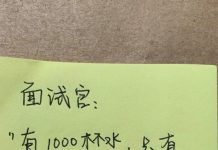 面试官:
"有1000杯水,只有